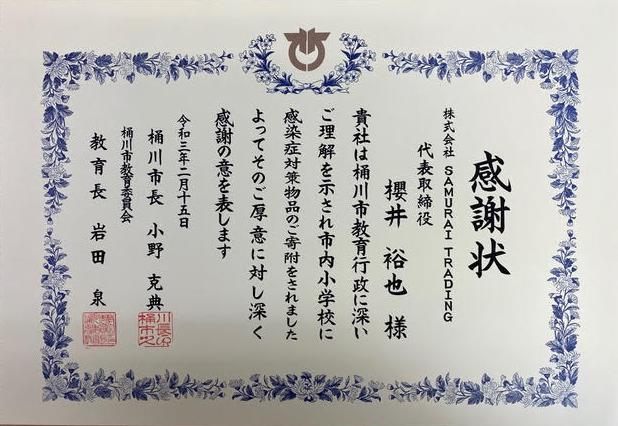 感謝状
株式会社 SAMURAI TRADING
代表取締役
櫻井 裕也 様
貴社は桶川市教育行政に深い
ご理解を示され市内小学校に
感染症対策物品のご寄附をされました
よってそのご厚意に対し深く
感謝の意を表します
令和三年二月十五日
桶川市長 小野 克典
桶川市教育委員会
教育長 岩田 泉